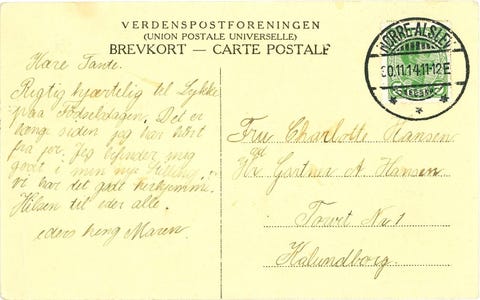 VERDENSPOSTFORENINGEN
(UNION POSTALE UNIVERSELLE)
BREVKORT — CARTE POSTALE
NØRRE-ALSLEV
30.11.14.11-12E
Kære Tante.
Rigtig hjærtelig til Lykke
paa Fødselsdagen. Det er
længe siden jeg har hørt
fra jer. Jeg befinder mig
godt i min nye Stilling,
vi har det godt herhjemme.
Hilsen til eder alle.
eders heng Maren.
Fru Charlotte Hansen
Hr Gartner A. Hansen
Torvet No 1
Kalundborg.